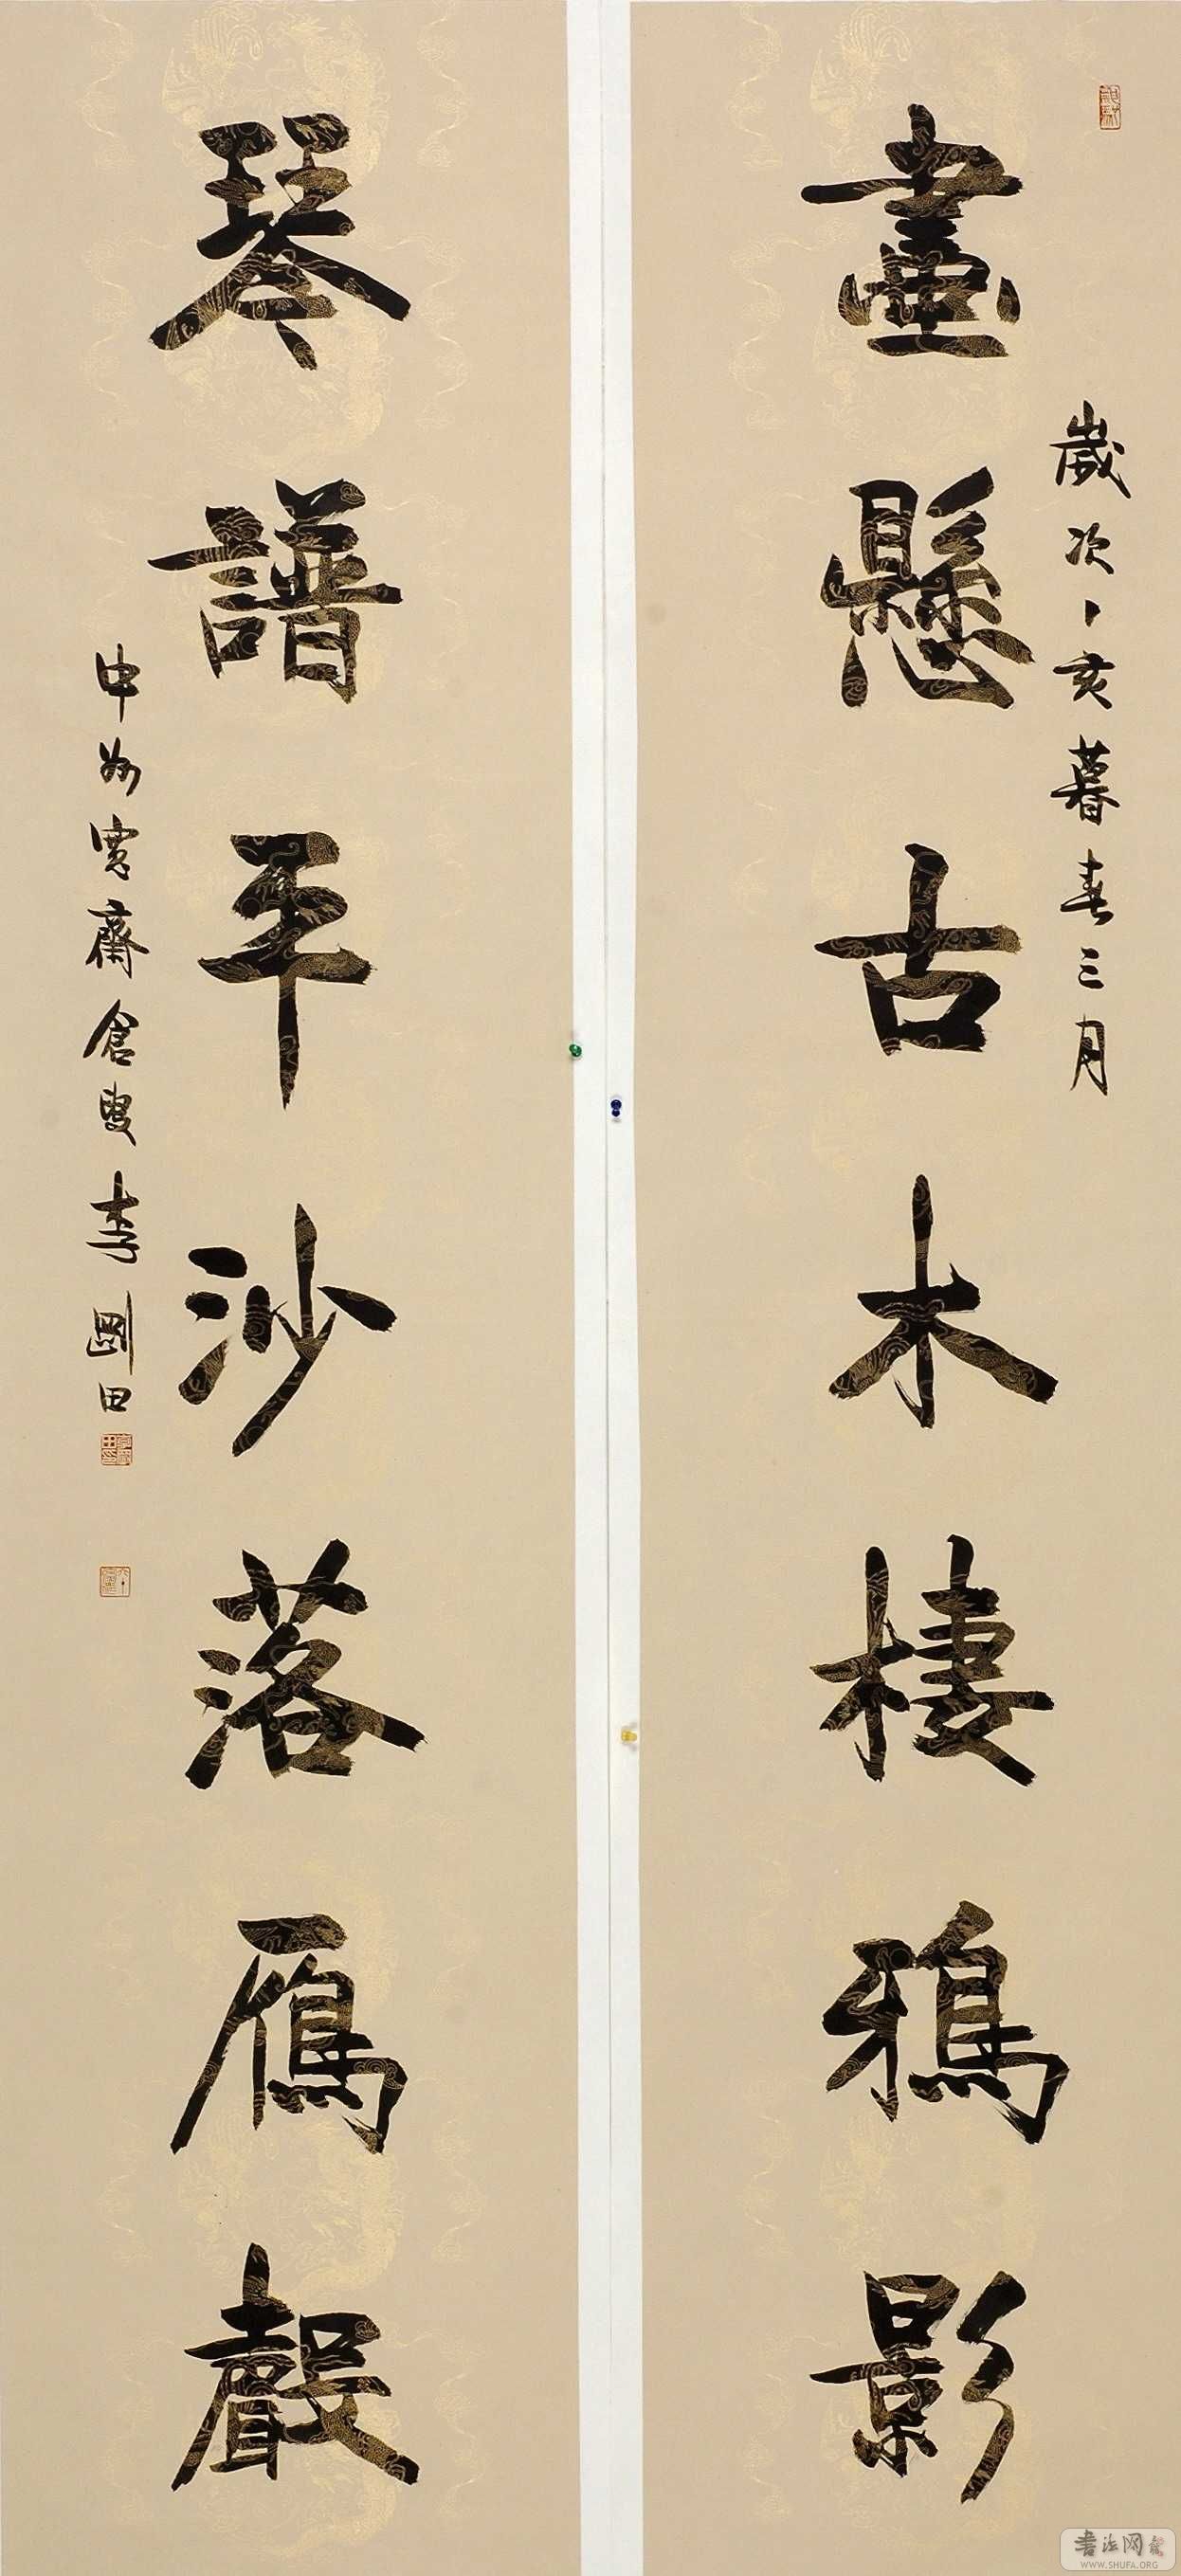 歲次丁亥暮春三月
畫懸古木棲鴉影
琴譜平沙落鴈聲
中州寬齋倉叟李剛田
書法网
WWW.SHUFA.ORG